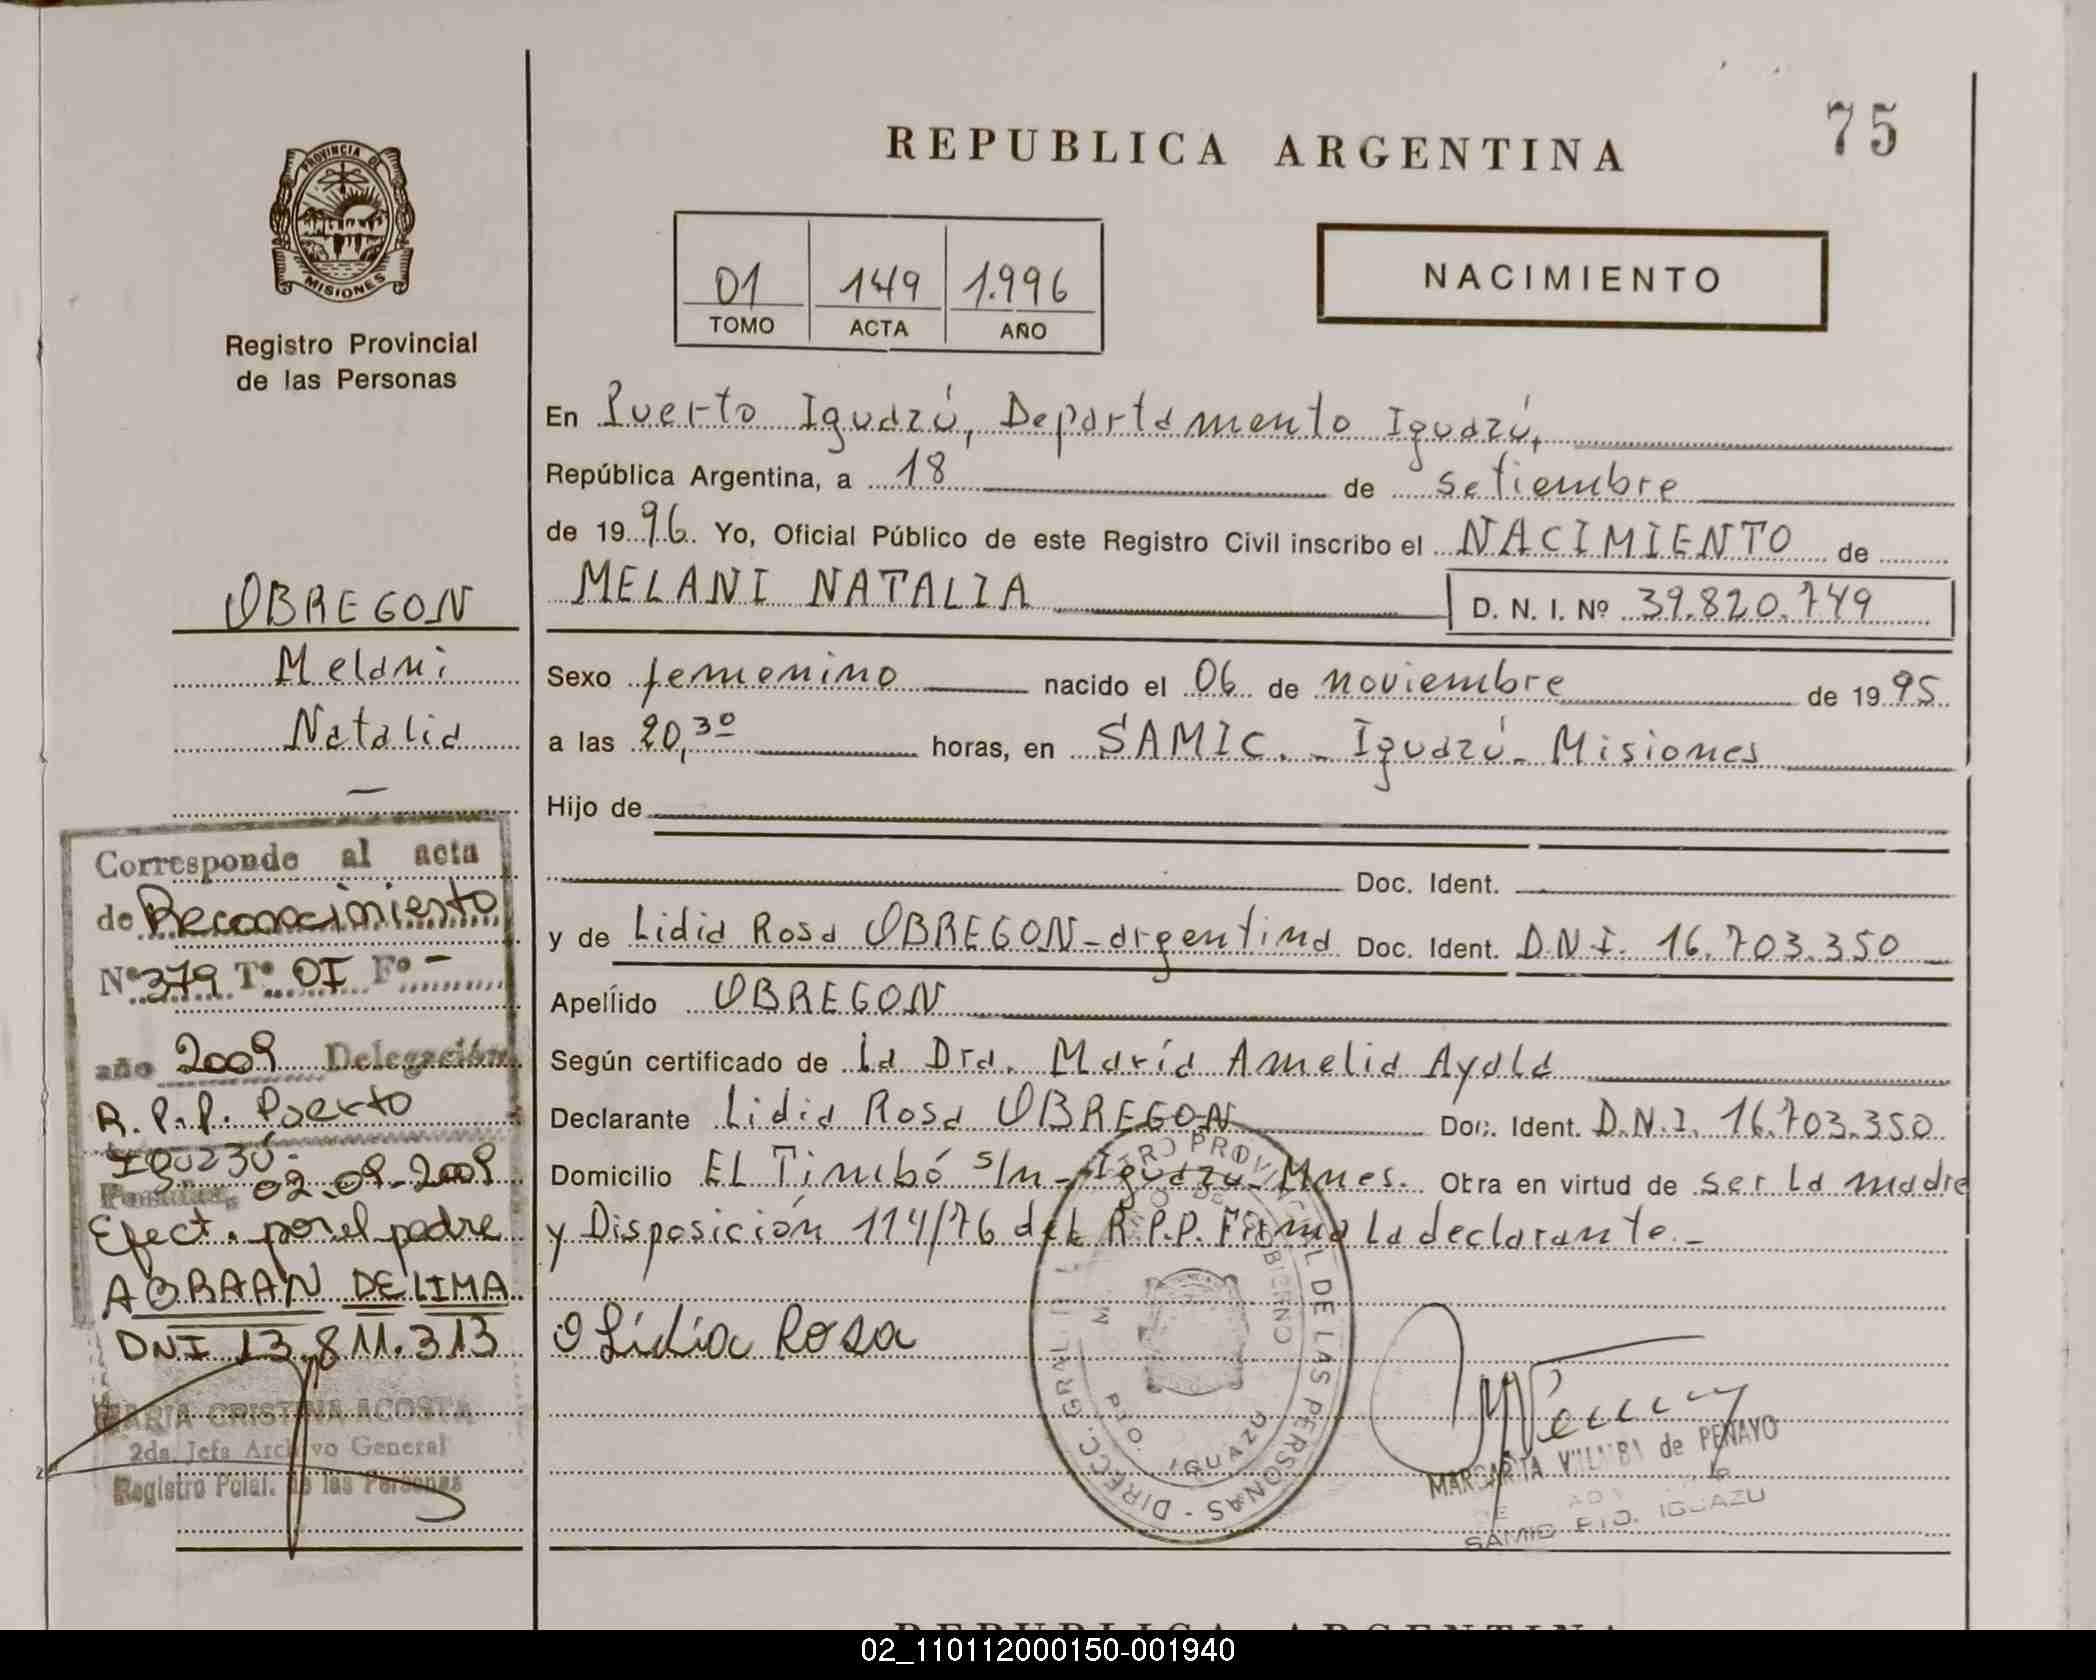 75
REPUBLICA ARGENTINA
PROVINCIA DE
MISIONES
Registro Provincial
de las Personas
01 149 1.996
TOMO ACTA AÑO
NACIMIENTO
En Puerto Iguazú, Departamento Iguazú,
República Argentina, a 18 de setiembre
de 1996. Yo, Oficial Público de este Registro Civil inscribo el NACIMIENTO de
MELANI NATALIA D. N. I. Nº 39.820.749
Sexo femenino nacido el 06 de noviembre de 1995
a las 20,30 horas, en SAMIC. - Iguazú - Misiones
Hijo de
Doc. Ident.
y de Lidia Rosa OBREGON - argentina Doc. Ident. D.N.I. 16.703.350
Apellido OBREGON
Según certificado de La Dra. María Amelia Ayala
Declarante Lidia Rosa OBREGON Doc. Ident. D.N.I. 16.703.350
Domicilio EL Timbó s/n - Iguazú - Mnes. Obra en virtud de ser La madre
y Disposición 114/76 del R.P.P. Firma La declarante.-
O Lidia Rosa
OBREGON
Melani
Natalia
Corresponde al acta
de Reconocimiento
Nº 379 Tº 01 Fº -
año 2009 Delegación
R.P.P. Puerto
Iguazú.
Posadas, 02-09-2009
Efect. por el padre
ABRAAN DE LIMA
DNI 13.811.313
MARIA CRISTINA ACOSTA
2da. Jefa Archivo General
Registro Pcial. de las Personas
DIRECC. GRAL. DEL REGISTRO PROVINCIAL DE LAS PERSONAS
PTO. IGUAZU
MARGARITA VILLALBA de PENAYO
SAMIC PTO. IGUAZU
REPUBLICA ARGENTINA
02_110112000150-001940